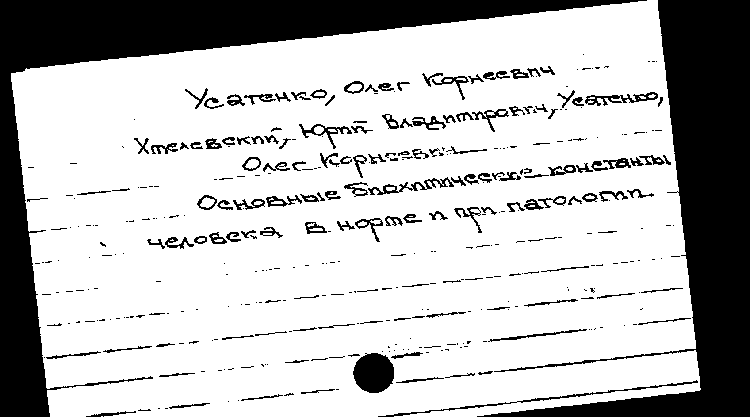 Усатенко, Олег Корнеевич
Хмелевский, Юрий Владимирович, Усатенко,
Олег Корнеевич.
Основные биохимические константы
человека в норме и при патологии.